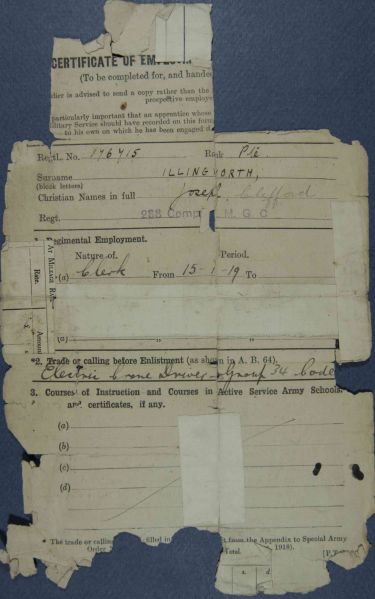 CERTIFICATE OF
(To be completed for, and
dier is advised to send a copy rather than the
prospective
particularly important that an apprentice whose
ilitary Service should have recorded on this
to his own on which he has been engaged
Regtl. No. 176715 Rank Pte
Surname ILLINGWORTH,
(block letters)
Christian Names in full Joseph Clifford
Regt. 288 M. G. C
Regimental Employment.
Nature of. Period.
(a) Clerk From 15-1-19 To
AT MILEAGE
Rate.
Amount
(d) " "
*2. Trade or calling before Enlistment (as shewn in A. B. 64).
Electric Crane Driver Group 34 Code
3. Courses of Instruction and Courses in Active Service Army Schools,
and certificates, if any.
(a)
(b)
(c)
(d)
* The trade or calling filled in from the Appendix to Special Army
Order 1918).
Total.
s. d.